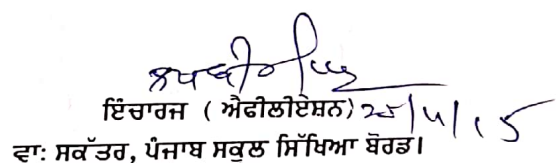 ਇੰਚਾਰਜ ( ਐਫੀਲੀਏਸ਼ਨ)
ਵਾ: ਸਕੱਤਰ, ਪੰਜਾਬ ਸਕੂਲ ਸਿੱਖਿਆ ਬੋਰਡ।